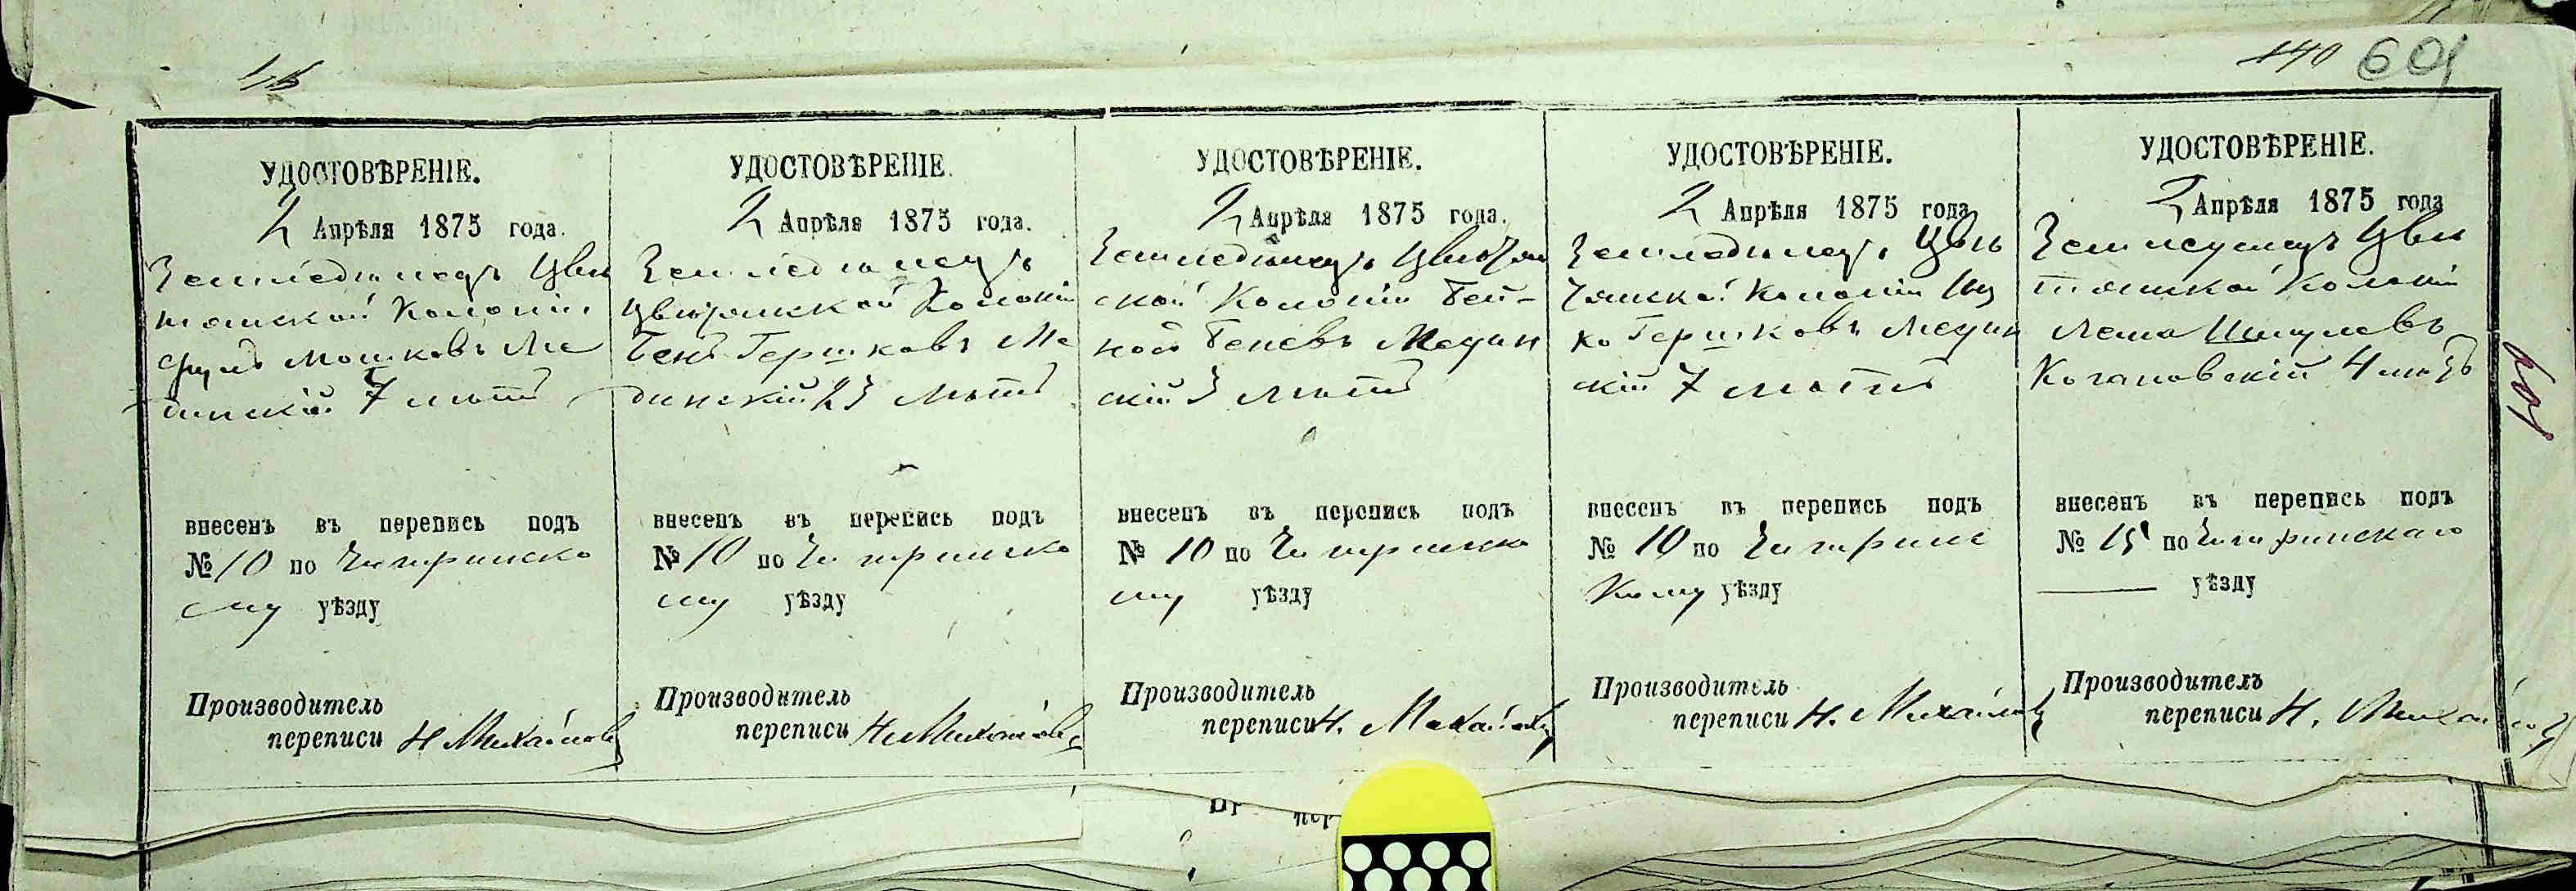 601
УДОСТОВѢРЕНІЕ.
2 Апрѣля 1875 года.
Земледѣлецъ Цви
тянской Колоніи
Сруль Мошковъ Ме
динскій 7 лѣтъ
внесенъ въ перепись подъ
№ 10 по Чигиринско
му уѣзду
Производитель
переписи Н Михайловъ
УДОСТОВѢРЕНІЕ.
2 Апрѣля 1875 года.
Земледѣлецъ
Цвитянской Колоніи
Гершковъ Ме
динскій 23 лѣтъ
внесенъ въ перепись подъ
№ 10 по Чигиринско
му уѣзду
Производитель
переписи Н Михайловъ
УДОСТОВѢРЕНІЕ.
2 Апрѣля 1875 года.
Земледѣлецъ Цвитян
ской Колоніи
Медин
скій 3 лѣтъ
внесенъ въ перепись подъ
№ 10 по Чигиринско
му уѣзду
Производитель
переписи Н. Михайловъ
УДОСТОВѢРЕНІЕ.
2 Апрѣля 1875 года
Земледѣлецъ Цви
тянской Колоніи Иц
ко Гершковъ Медин
скій 7 лѣтъ
внесенъ въ перепись подъ
№ 10 по Чигиринс
кому уѣзду
Производитель
переписи Н. Михайловъ
УДОСТОВѢРЕНІЕ.
2 Апрѣля 1875 года
Цви
тянской Колоніи
Шмулевъ
Когановскій 4 лѣтъ
внесенъ въ перепись подъ
№ 15 по Чигиринскаго
уѣзду
Производитель
переписи Н. Михайловъ
601